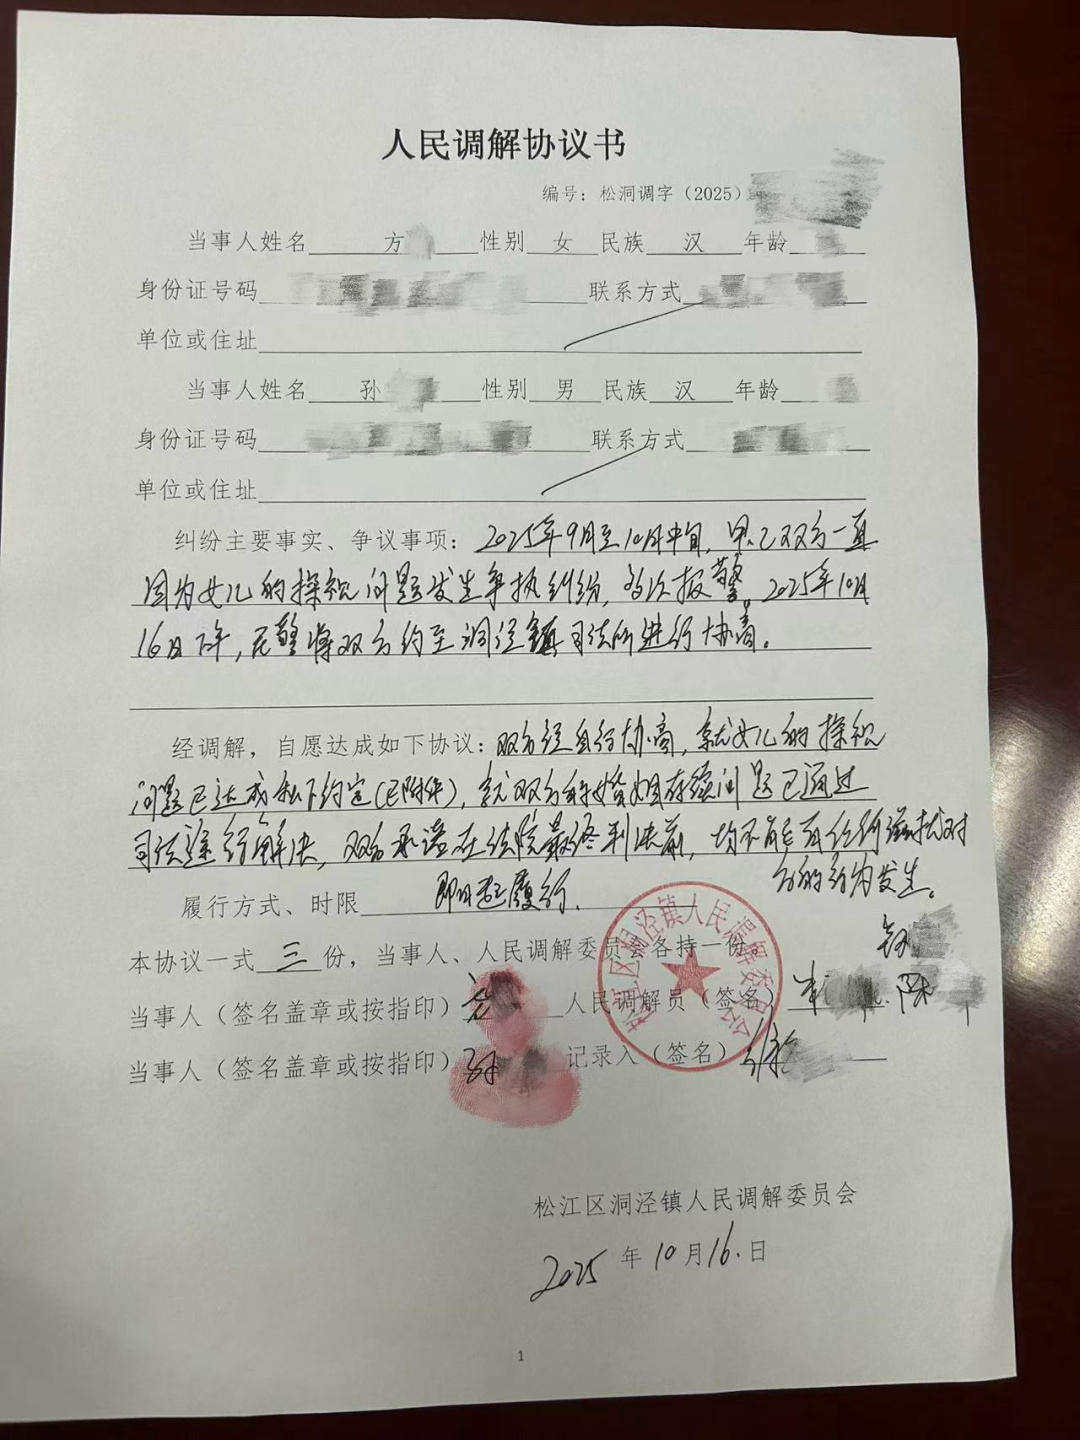 人民调解协议书
编号：松洞调字（2025）
当事人姓名 方 性别 女 民族 汉 年龄
身份证号码 联系方式
单位或住址
当事人姓名 孙 性别 男 民族 汉 年龄
身份证号码 联系方式
单位或住址
纠纷主要事实、争议事项：2025年9月至10月中旬，甲、乙双方一直
因为女儿的探视问题发生争执纠纷，多次报警。2025年10月
16日下午，民警将双方约至洞泾镇司法所进行协商。
经调解，自愿达成如下协议：双方经自行协商，就女儿的探视
问题已达成私下约定（已附件），就双方的婚姻存续问题已通过
司法途径解决，双方承诺在法院最终判决前，均不能有任何滋扰对
方的行为发生。
履行方式、时限 即日起履行.
本协议一式 三 份，当事人、人民调解委员会各持一份。
当事人（签名盖章或按指印） 方 人民调解员（签名） 陈
当事人（签名盖章或按指印） 孙 记录人（签名） 徐
松江区洞泾镇人民调解委员会
松江区洞泾镇人民调解委员会
2025年10月16.日
1